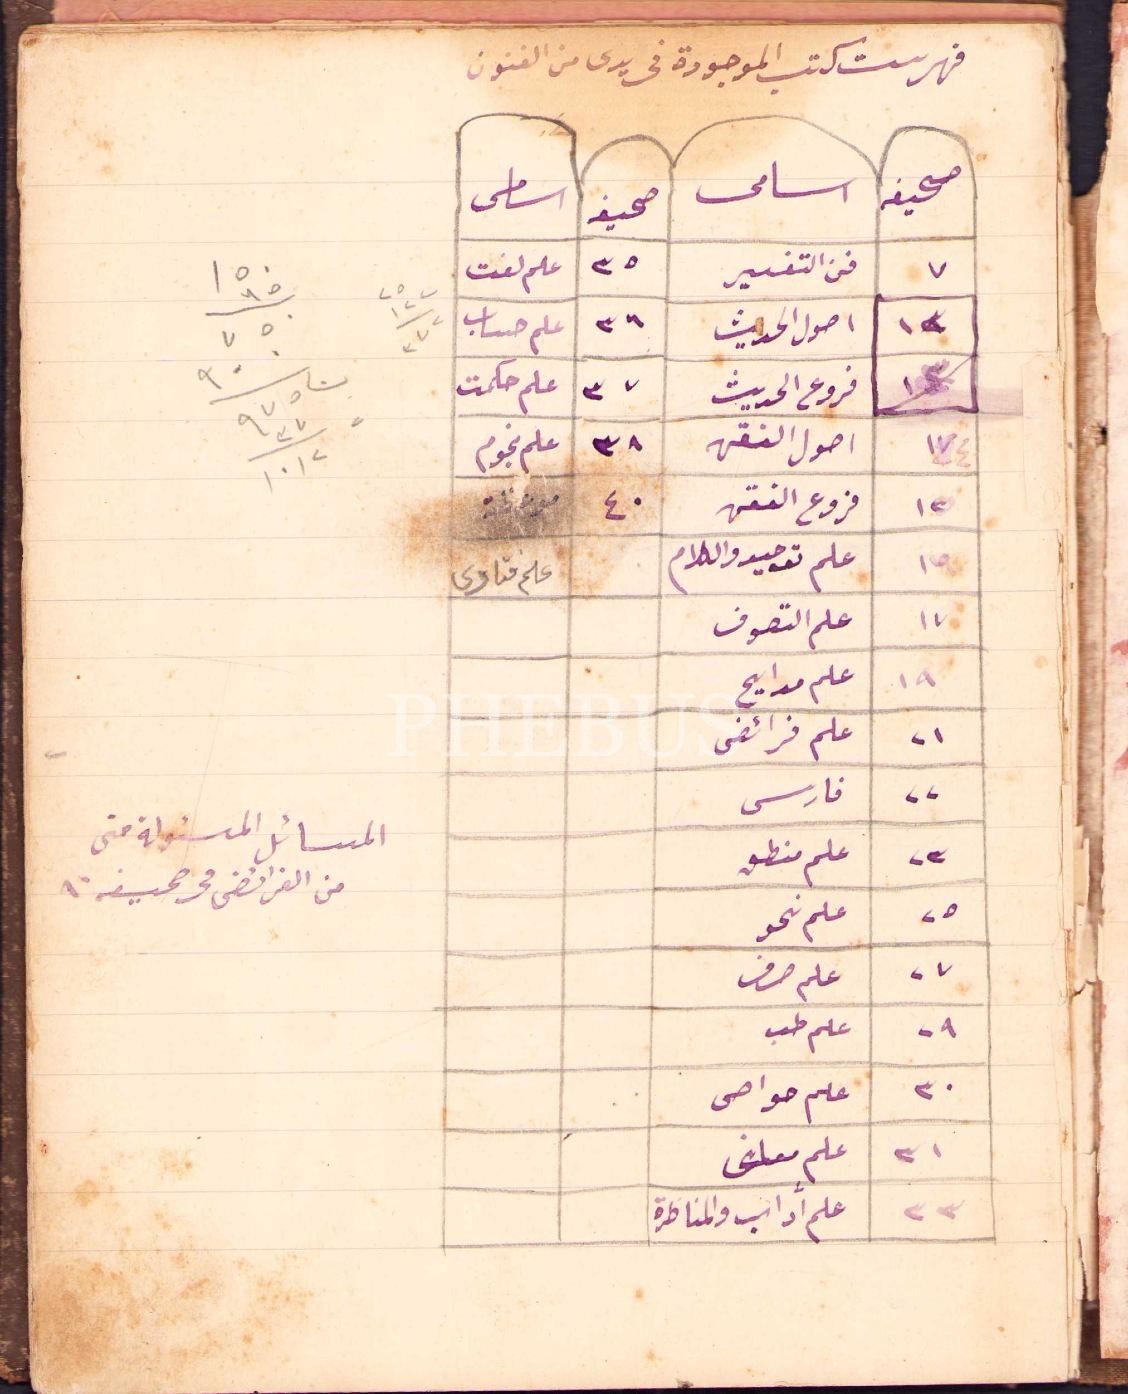 فهرست كتب الموجودة فى يدى من الفنون
صحيفه اسامى صحيفه اسامى
٧ فن التفسير ٣٥ علم لغت
اصول الحديث ٣٦ علم حساب
فروع الحديث ٣٧ علم حكمت
اصول الفقه ٣٨ علم نجوم
١٣ فروع الفقه ٤٠
١٥ علم توحيد والكلام علم فتاوى
١٧ علم التصوف
١٩ علم مدايح
٢١ علم فرائض
٢٢ فارسى
٢٣ علم منطق
٢٥ علم نحو
٢٧ علم صرف
٢٩ علم طب
٣٠ علم حواص
٣١ علم معانى
٣٣ علم أداب والمناظرة
المسائل المسئولة منى
من الفرائض فى صحيفه ٩٠
PHEBUS